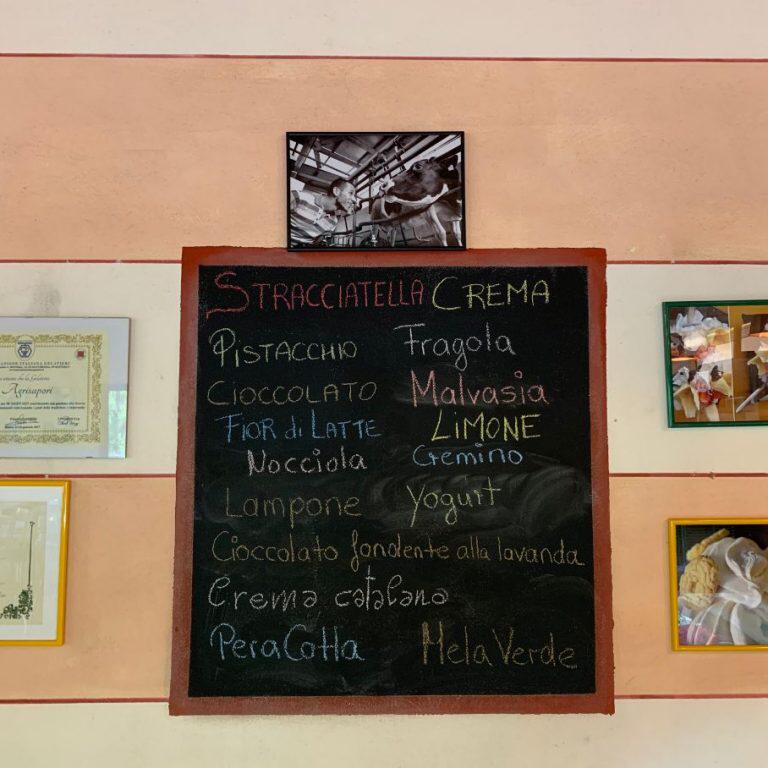 STRACCIATELLA CREMA
PISTACCHIO Fragola
CIOCCOLATO Malvasia
FIOR di LATTE LIMONE
Nocciola Cremino
Lampone Yogurt
Cioccolato fondente alla lavanda
Crema catalana
Pera Cotta Mela Verde
Agrisapori